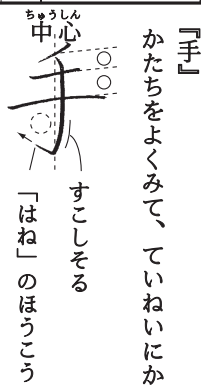 『手』
かたちをよくみて、ていねいにか
ちゅうしん
中心
手
すこしそる
「はね」のほうこう